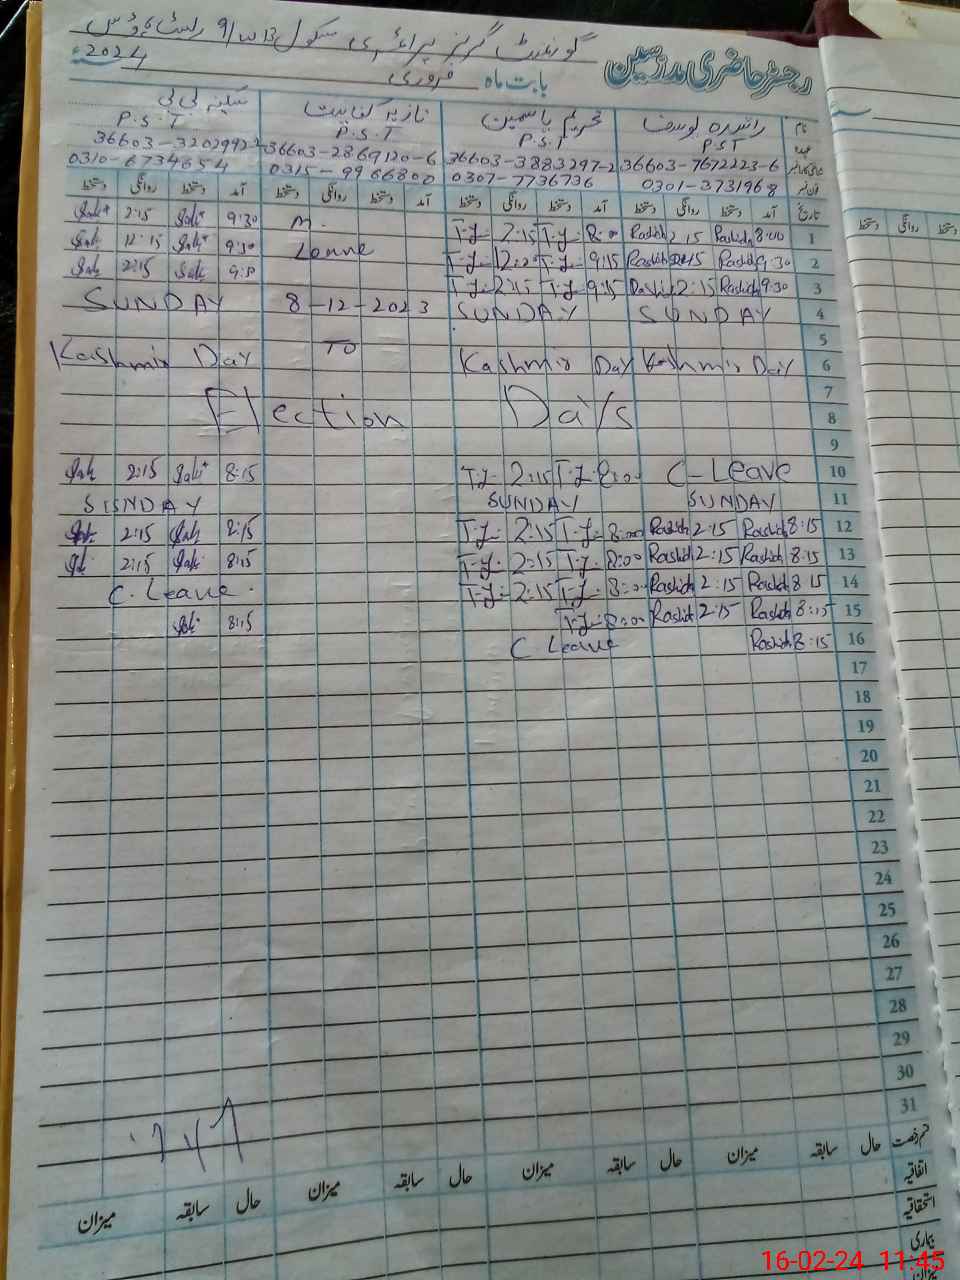 گورنمنٹ گرلز پرائمری سکول 9/WB
رجسٹر حاضری مدرسین
بابت ماہ فروری 2024
نام راشدہ یوسف تحریم یاسمین نازیہ کفایت سکینہ بی بی
عہدہ PST P.S.T P.S.T P.S.T
36603-7672223-6 36603-3883297-2 36603-2869120-6 36603-3202992-2
0301-3731968 0307-7736736 0315-9966800 0310-6734654
تاریخ آمد دستخط روانگی دستخط آمد دستخط روانگی دستخط آمد دستخط روانگی دستخط آمد دستخط روانگی دستخط
1 8:00 Rashida 2:15 Rashida 8:00 T.Y 2:15 T.Y M. 9:30 2:15
2 9:30 Rashida Rashida 9:15 T.Y T.Y Leave 9:30 12:15
3 9:30 Rashida 2:15 Rashida 9:15 T.Y 2:15 T.Y 2:15
4 SUNDAY SUNDAY 8-12-2023 SUNDAY
5 TO
6 Kashmir Day Kashmir Day Kashmir Day
7
8 Election Days
9
10 C-Leave 8:00 T.Y 2:15 T.Y 8:15 2:15
11 SUNDAY SUNDAY SUNDAY
12 8:15 Rashida 2:15 Rashida 8:00 T.Y 2:15 T.Y 8:15 2:15
13 8:15 Rashida 2:15 Rashida 8:00 T.Y 2:15 T.Y 8:15 2:15
14 8:15 Rashida 2:15 Rashida 8:00 T.Y 2:15 T.Y C. Leave
15 8:15 Rashida 2:15 Rashida 8:00 T.Y 8:15
16 8:15 Rashida C Leave
17
18
19
20
21
22
23
24
25
26
27
28
29
30
31
قسم رخصت حال سابقہ میزان حال سابقہ میزان حال سابقہ میزان حال سابقہ میزان
اتفاقیہ
استحقاقیہ
بیماری
میزان
دستخط روانگی دستخط
16-02-24 11:45